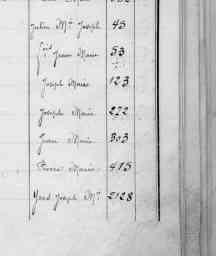 Julien M.ie Joseph 45
Jean Marie 53
Joseph Marie 123
Joseph Marie 272
Jean Marie 303
Pierre Marie 415
Joseph M.ie 2128